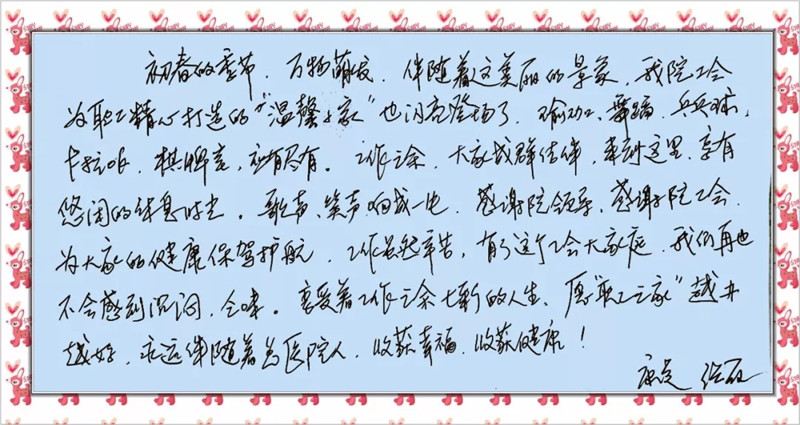 初春的季节，万物萌发，伴随着这美丽的景象，我院工会
为职工精心打造的“温馨之家”也闪亮登场了，瑜珈、舞蹈、乒乓球，
卡拉ok、棋牌室，应有尽有。工作之余，大家成群结伴，来到这里，享有
悠闲的休息时光。歌声、笑声响成一片，感谢院领导，感谢院工会，
为大家的健康保驾护航，工作总起辛苦，有了这个工会大家庭，我们再也
不会感到沉闷，享受着工作之余崭新的人生，愿“职工之家”越办
越好，永远伴随着医院人，收获幸福，收获健康！